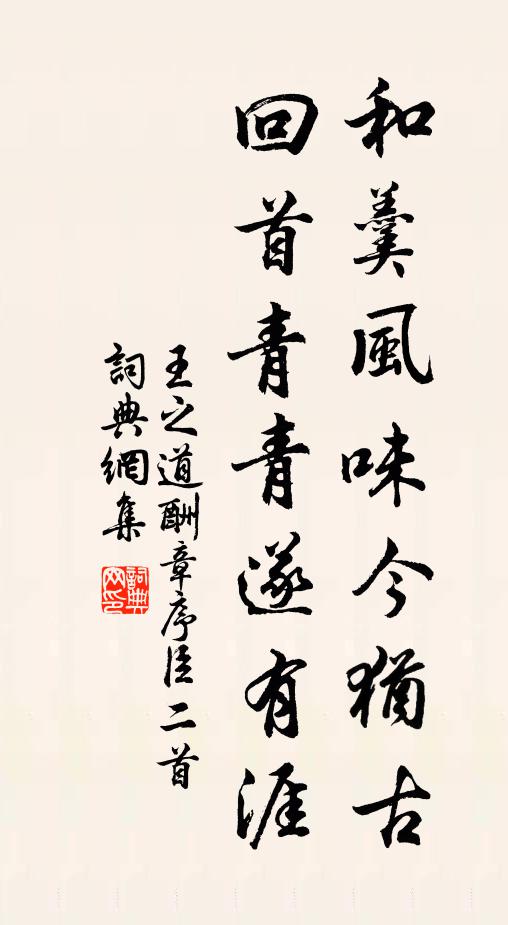 和羹風味今猶古
回首青青遂有涯
王之道酬章序臣二首
詞典網集
詞典网印